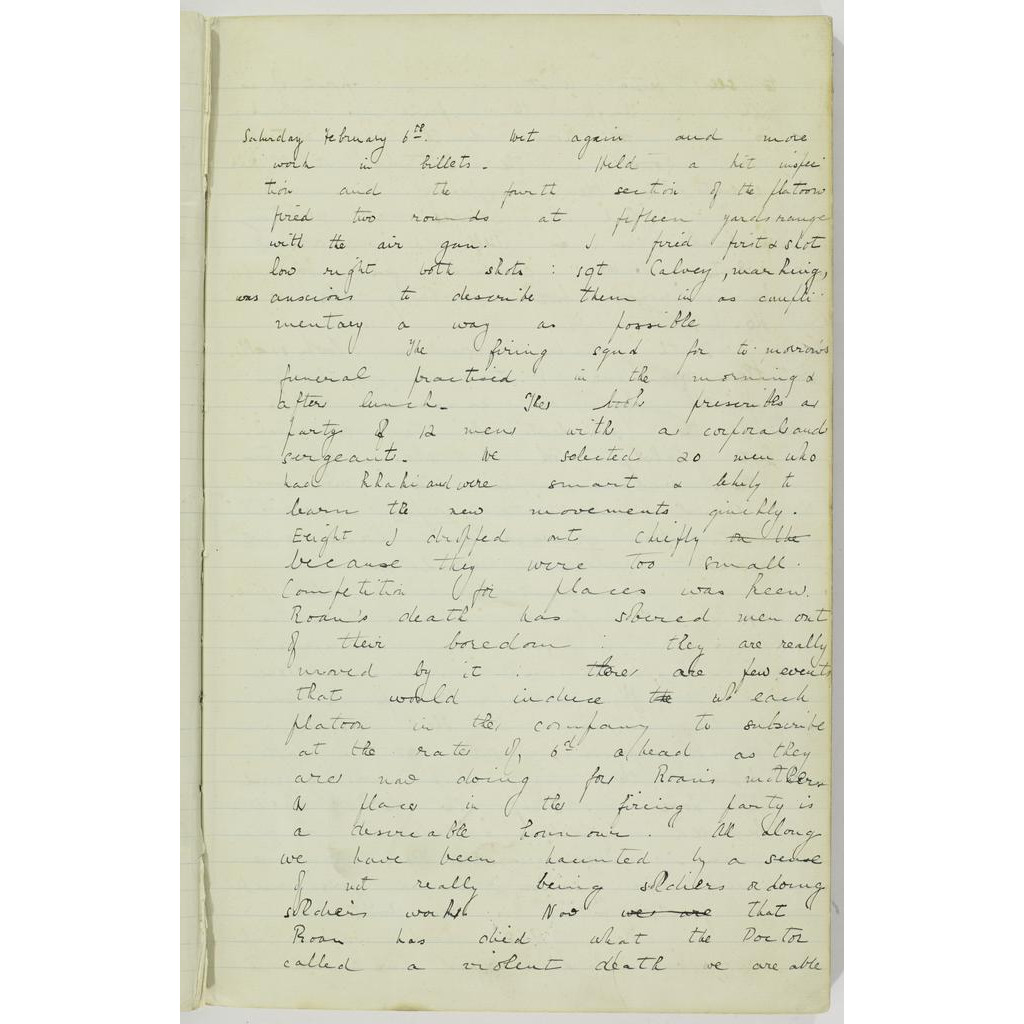 Saturday February 6th. Wet again and more
work in billets. Held a kit inspec
tion and the fourth section of the platoon
fired two rounds at fifteen yards range
with the air gun. I fired first & shot
low right both shots: Sgt Calvey, marking,
was anxious to describe them in as compli
mentary a way as possible
The firing squd for to-morrow's
funeral practised in the morning &
after lunch. The book prescribes a
party of 12 men with a corporal and
sergeant. We selected 20 men who
had khaki and were smart & likely to
learn the new movements quickly.
Eeight I dropped out chiefly on the
because they were too small.
Competition for places was keen.
Roan's death has sobered men out
of their boredom: they are really
moved by it: there are few events
that would induce the each
platoon in the company to subscribe
at the rate of 6d a head as they
are now doing for Roan's mother
A place in the firing party is
a desireable honnour. All along
we have been haunted by a sense
of not really being soldiers or doing
soldiers work. Now we are that
Roan has died what the Doctor
called a violent death we are able